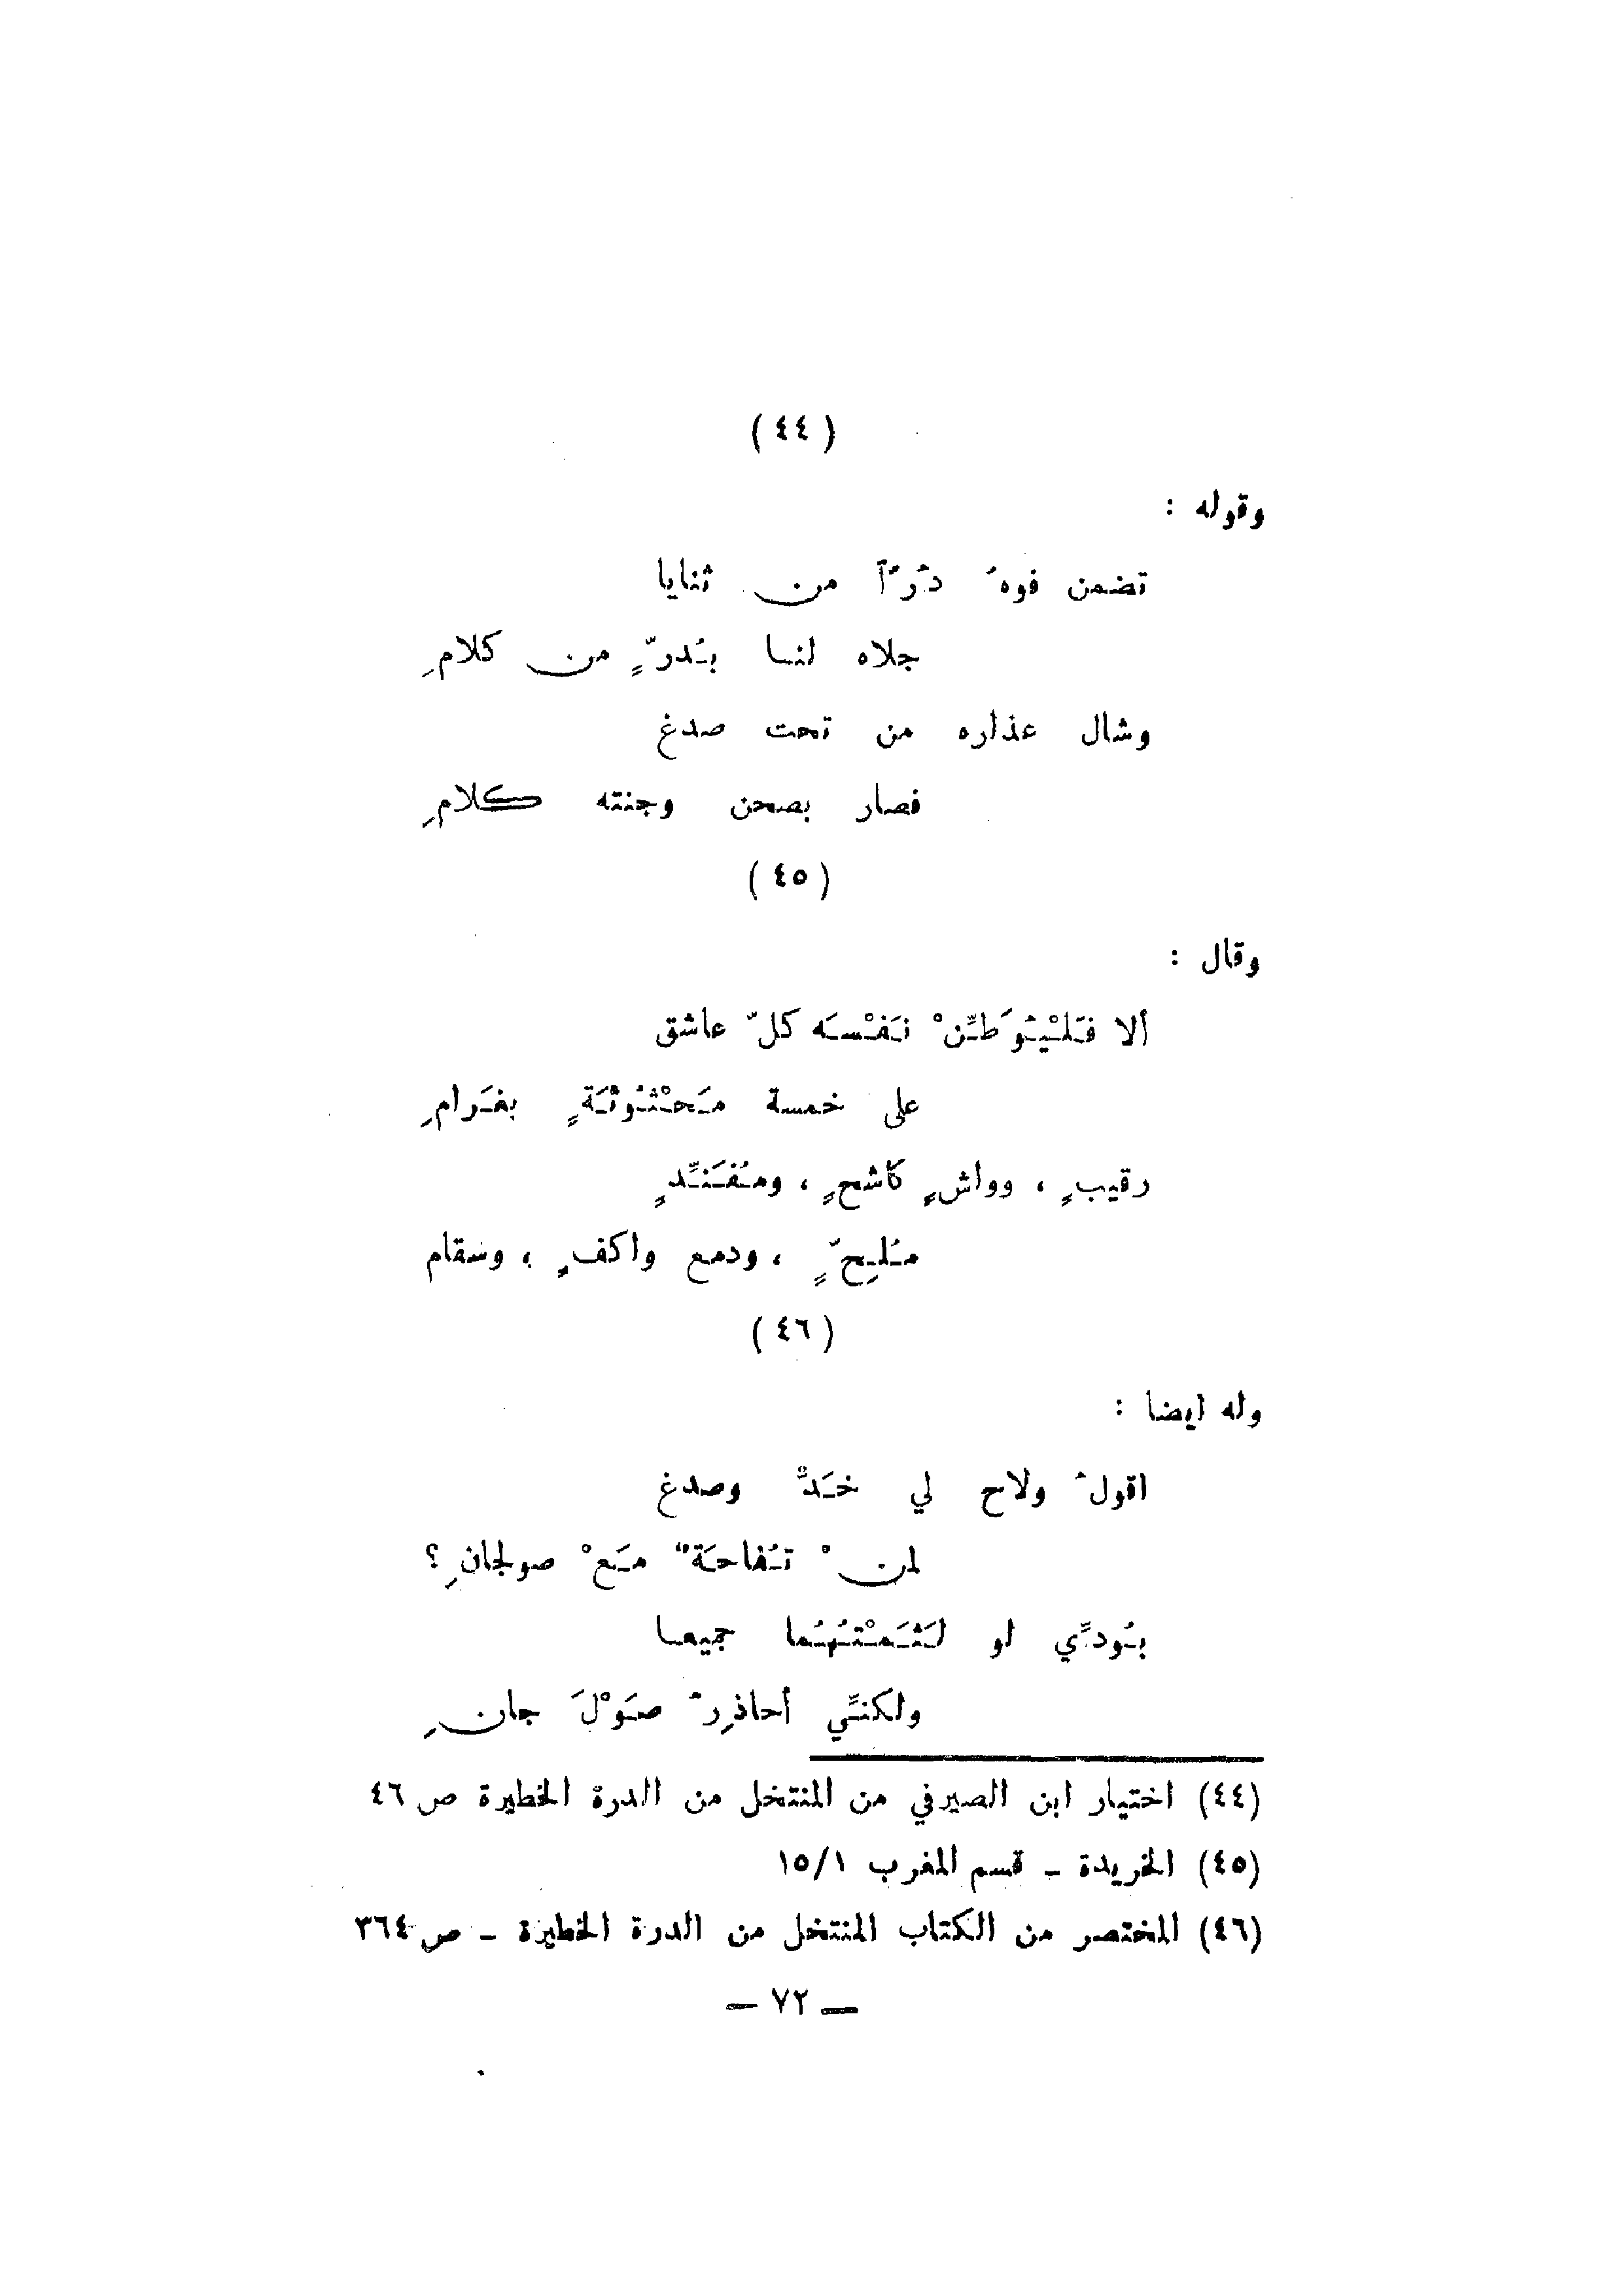 ( ٤٤ )
وقوله :
تضمن فوهُ دُرّاً من ثنايا
جلاه لنا بِدُرٍّ من كلامِ
وشال عذاره من تحت صدغ
فصار بصحن وجنته كلامِ
( ٤٥ )
وقال :
ألا فَلْيُوَطِّنْ نَفْسَه كلّ عاشق
على خمسة مَحْثُوثَةٍ بغَرامِ
رقيبٍ ، وواشٍ كاشحٍ ، ومُفَنِّدٍ
مُلِحٍّ ، ودمع واكفٍ ، وسقام
( ٤٦ )
وله ايضا :
اقولُ ولاح لي خَدٌّ وصدغ
لمنْ تُفاحَةٌ مَعْ صولجانِ ؟
بُودِّي لو لَثَمْتُهُما جميعا
ولكنِّي أحاذِرُ صَوْلَ جانِ
(٤٤) اختيار ابن الصيرفي من المنتخل من الدرة الخطيرة ص ٤٦
(٤٥) الخريدة ــ قسم المغرب ١٥/١
(٤٦) المختصر من الكتاب المنتخل من الدرة الخطيرة ــ ص ٣٦٤
ــ ٧٢ ــ